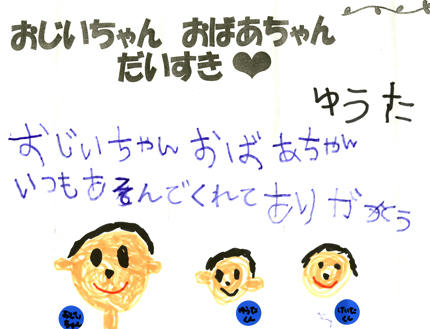 おじいちゃん おばあちゃん
だいすき♥
ゆうた
おじいちゃん おばあちゃん
いつもあそんでくれて ありがとう
おじい
ちゃん
ゆうた
くん
けいた
くん